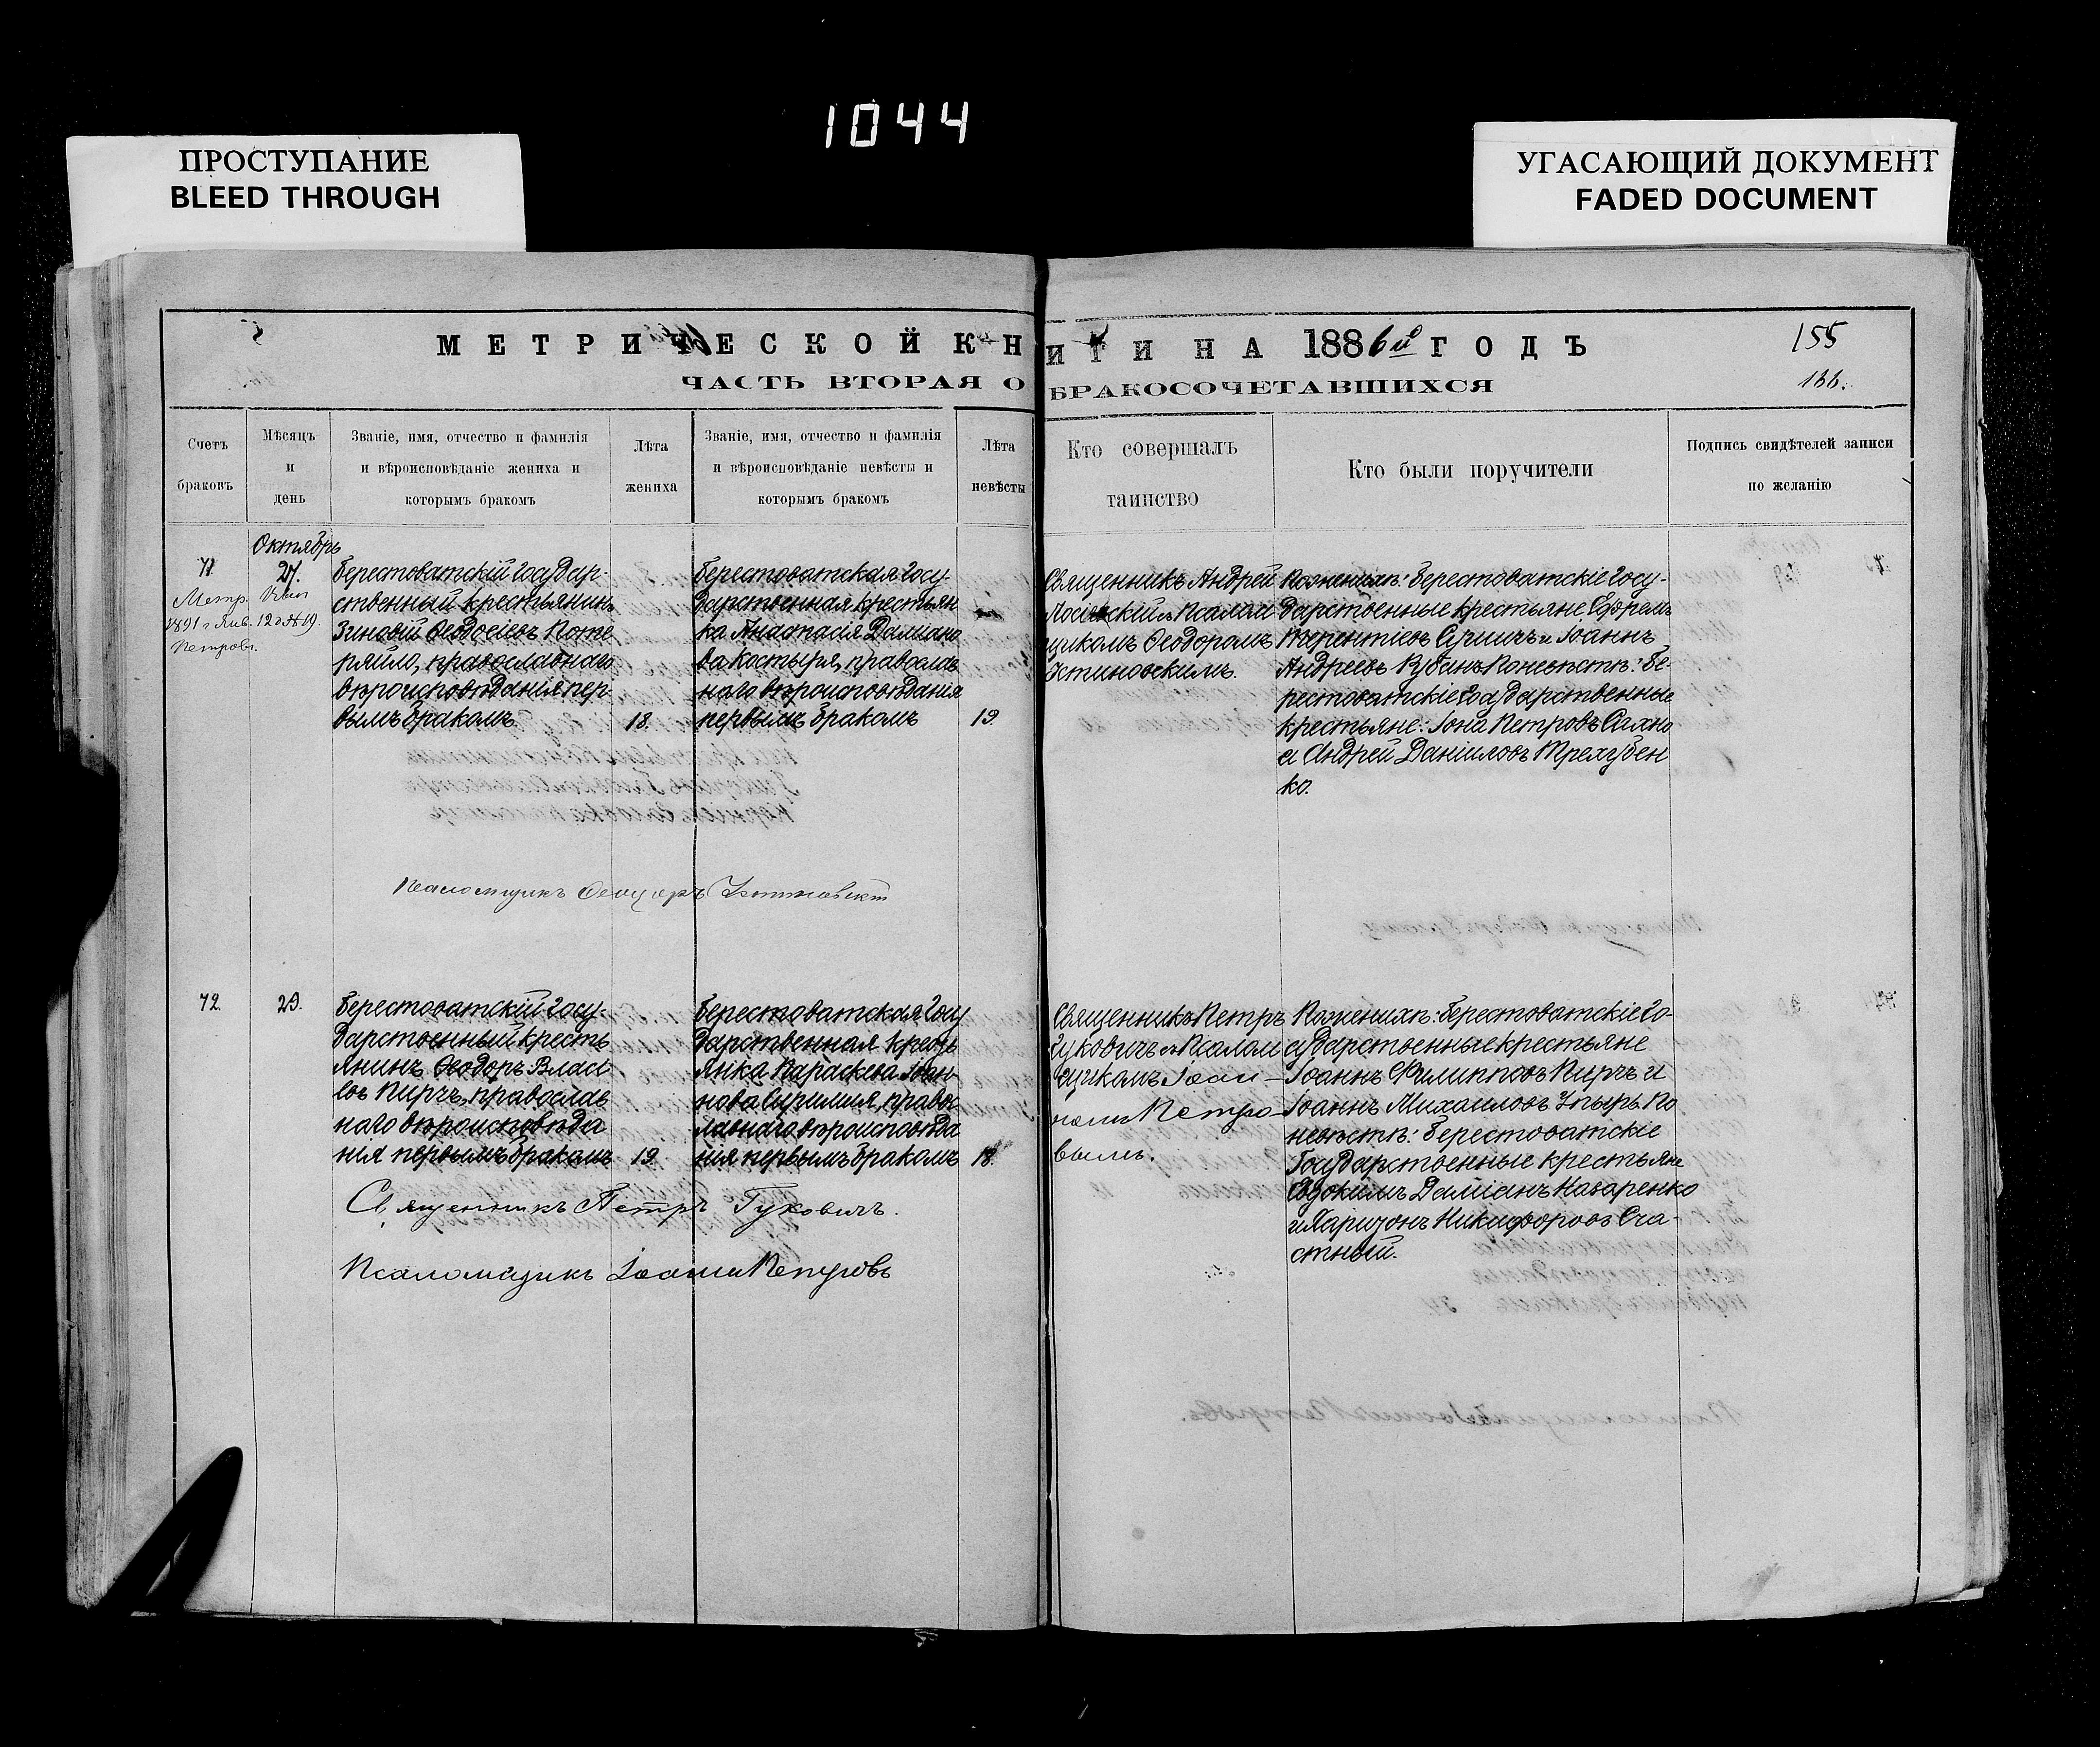 1044
ПРОСТУПАНИЕ
BLEED THROUGH
УГАСАЮЩИЙ ДОКУМЕНТ
FADED DOCUMENT
МЕТРИЧЕСКОЙ КНИГИ НА 1886й ГОДЪ
155
166.
ЧАСТЬ ВТОРАЯ О БРАКОСОЧЕТАВШИХСЯ
Счетъ
браковъ
Мѣсяцъ
и
день
Званіе, имя, отчество и фамилія
и вѣроисповѣданіе жениха и
которымъ бракомъ
Лѣта
жениха
Званіе, имя, отчество и фамилія
и вѣроисповѣданіе невѣсты и
которымъ бракомъ
Лѣта
невѣсты
Кто совершалъ
таинство
Кто были поручители
Подпись свидѣтелей записи
по желанію
71
Метр.
1891 г Янв.
Октябрь
27.
12 д № 19.
Берестоватскій Государ-
ственный крестьянинъ
Зиновій Ѳеодосіевъ Поте
ряйло, православнаго
вѣроисповѣданія пер-
вымъ бракомъ
18.
Берестоватская Госу-
дарственная крестьян
ка Анастасія Даміано
ва Костыря, православ
наго вѣроисповѣданія
первымъ бракомъ
19
Священникъ Андрей
съ Псалом
щикомъ Ѳеодоромъ
Устиновскимъ.
По женихѣ: Берестоватскіе Госу-
дарственные крестьяне Ефремъ
Терентіевъ и Іоаннъ
Андреевъ По невѣстѣ: Бе-
рестоватскіе Государственные
крестьяне: Іона Петровъ
и Андрей Даніиловъ Трегубен
ко.
Псаломщикъ Ѳеодоръ Устиновскій
72.
29.
Берестоватскій Госу-
дарственный кресть
янинъ Ѳеодоръ Власі
евъ Пирчъ, православ
наго вѣроисповѣда
нія первымъ бракомъ
19.
Берестоватская Госу
дарственная кресть
янка Параскева Іоан-
нова православ
лавнаго вѣроисповѣда
нія первымъ бракомъ
18.
Священникъ Петръ
Гуковичъ съ Псалом
щикомъ Іоан-
номъ Петро-
вымъ.
По женихѣ: Берестоватскіе Го-
сударственные крестьяне
Іоаннъ Филипповъ Пирчъ и
Іоаннъ Михаиловъ По
невѣстѣ: Берестоватскіе
Государственные крестьяне
Евдокимъ Даміанъ Назаренко
и Ларіонъ Никифоровъ Сча-
стный.
Священникъ Петръ Гуковичъ.
Псаломщикъ Іоаннъ Петровъ